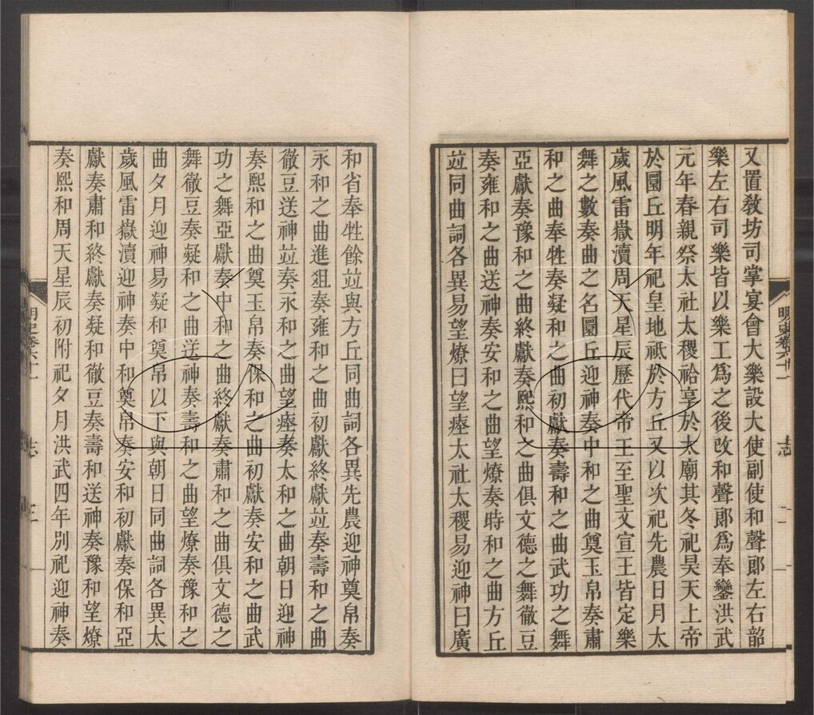 又置敎坊司掌宴會大樂設大使副使和聲郞左右韶
樂左右司樂皆以樂工爲之後改和聲郞爲奉鑾洪武
元年春親祭太社太稷祫享於太廟其冬祀昊天上帝
於圜丘明年祀皇地祇於方丘又以次祀先農日月太
歲風雷嶽瀆周天星辰歷代帝王至聖文宣王皆定樂
舞之數奏曲之名圜丘迎神奏中和之曲奠玉帛奏肅
和之曲奉牲奏凝和之曲初獻奏壽和之曲武功之舞
亞獻奏豫和之曲終獻奏熙和之曲俱文德之舞徹豆
奏雍和之曲送神奏安和之曲望燎奏時和之曲方丘
竝同曲詞各異易望燎曰望瘞太社太稷易迎神曰廣
明史卷六十一 志 二
和省奉牲餘竝與方丘同曲詞各異先農迎神奠帛奏
永和之曲進俎奏雍和之曲初獻終獻竝奏壽和之曲
徹豆送神竝奏永和之曲望瘞奏太和之曲朝日迎神
奏熙和之曲奠玉帛奏保和之曲初獻奏安和之曲武
功之舞亞獻奏中和之曲終獻奏肅和之曲俱文德之
舞徹豆奏凝和之曲送神奏壽和之曲望燎奏豫和之
曲夕月迎神易凝和奠帛以下與朝日同曲詞各異太
歲風雷嶽瀆迎神奏中和奠帛奏安和初獻奏保和亞
獻奏肅和終獻奏凝和徹豆奏壽和送神奏豫和望燎
奏熙和周天星辰初附祀夕月洪武四年別祀迎神奏
明史卷六十一 志 三